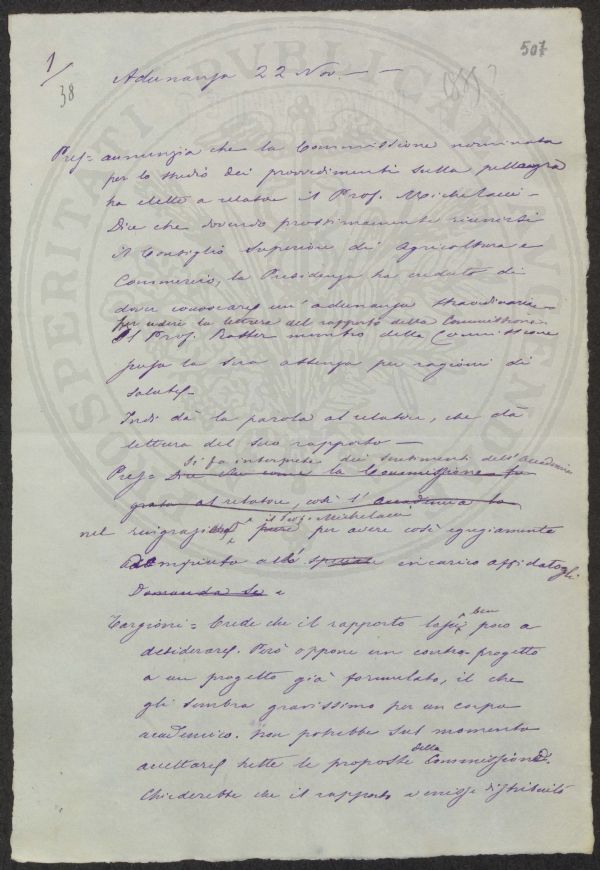 507
1/
38
Adunanza 22 Nov. — —
Pres= annunzia che la Commissione nominata
per lo studio dei provvedimenti sulla pellagra
ha eletto a relatore il Prof. Michelacci —
Dice che dovendo prossimamente riunirsi
il Consiglio Superiore di Agricoltura e
Commercio, la Presidenza ha creduto di
dover convocare un'adunanza straordinaria
per udire la lettura del rapporto della Commissione
Il Prof. membro della Commissione
la sera assenza per ragioni di
salute
Indi dà la parola al relatore, che dà
lettura del suo rapporto —
Si fa interprete dei sentimenti dell'Accademia
Pres= Dice che come la Commissione fu
grata al relatore, così l'Accademia lo
il Prof. Michelacci
nel per avere così egregiamente
adempiuto all' incarico affidatogli
Domanda se e
Targioni = Crede che il rapporto lasci ben poco a
desiderare. Però oppone un contro-progetto
a un progetto già formulato, il che
gli sembra gravissimo per un corpo
accademico. Non potrebbe sul momento
accettare tutte le proposte della Commissione.
Chiederebbe che il rapporto venisse distribuito
PROSPERITATI PUBLICAE AUGENDAE